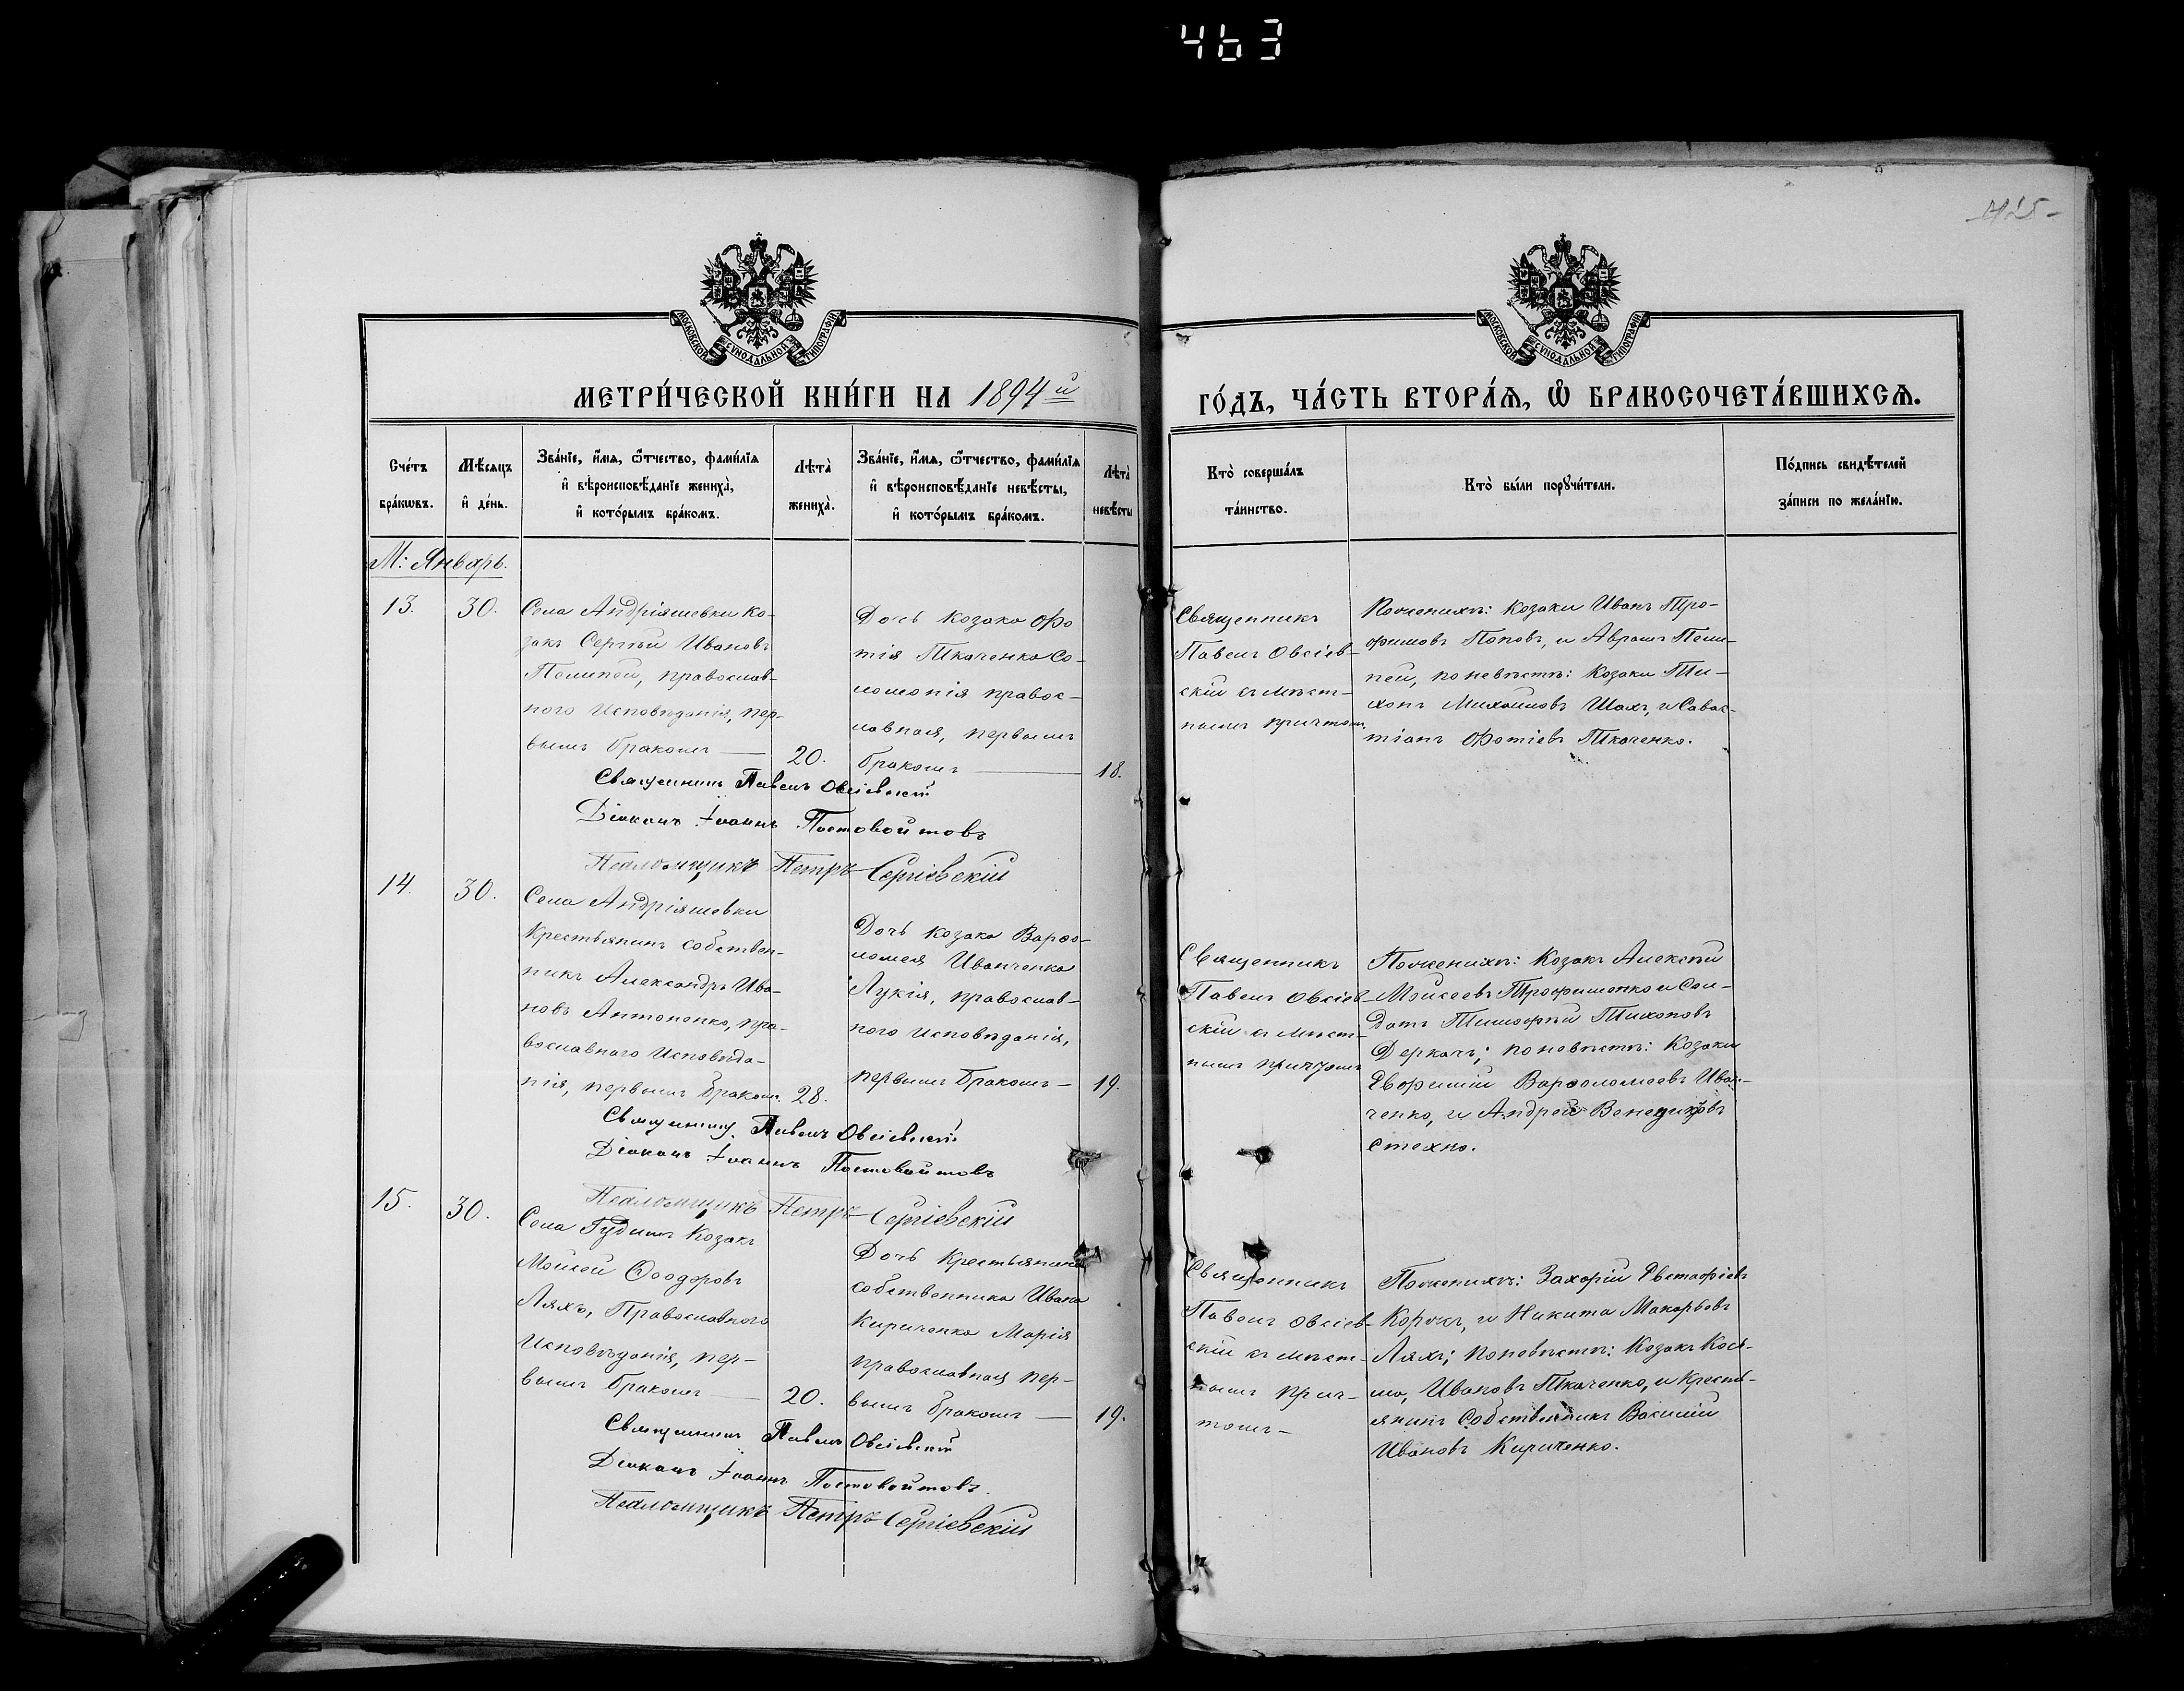 463
425
МОСКОВСКОЙ СѴНОДАЛЬНОЙ ТИПОГРАФІИ
МОСКОВСКОЙ СѴНОДАЛЬНОЙ ТИПОГРАФІИ
МЕТРИ́ЧЕСКОЙ КНИ́ГИ НА 1894 й
ГО́ДЪ, ЧА́СТЬ ВТОРА́Ѧ, Ѡ҆ БРАКОСОЧЕТА́ВШИХСѦ.
Сче́тъ
бра́кѡвъ.
Мѣ́сяцъ
и҆ де́нь.
Зва́нїе, и҆́мѧ, ѻ҆́тчество, фамѝлїя
и҆ вѣроисповѣ́данїе женихà,
и҆ кото́рымъ бра́комъ.
Лѣтà
женихà.
Зва́нїе, и҆́мѧ, ѻ҆́тчество, фамѝлїя
и҆ вѣроисповѣ́данїе невѣ́сты,
и҆ кото́рымъ бра́комъ.
Лѣтà
невѣ́сты
Кто̀ соверша́лъ
та́инство.
Кто̀ бы́ли порꙋчи́тели.
По́дпись свидѣ́телей
за́писи по жела́нїю.
М: Январь.
13.
30.
Села Андріяшевки Ко-
закъ Сергѣй Ивановъ
Пелипей, православ-
ного Исповѣданія, пер-
вымъ бракомъ —
20.
Дочь козака Фо
тія Ткаченка Со-
ломонія правос-
лавная, первымъ
бракомъ —
18.
Священникъ
Павелъ Овсіев-
скій съ мѣст-
нымъ причтомъ
По женихѣ: козаки Иванъ Тро-
фимовъ Поповъ, и Аврамъ Пели-
пей, по невѣстѣ: Козаки Ти-
хонъ Михайловъ Шахъ, и Савос-
тіанъ Фотіевъ Ткаченко.
Священникъ Павелъ Овсіевскій
Діаконъ Іоаннъ Постовойтовъ
Псаломщикъ Петръ Сергіевскій
14.
30.
Села Андріяшевки
Крестьянинъ собствен-
никъ Александръ Ива-
новъ Антоненко, пра-
вославнаго Исповѣда-
нія, первымъ бракомъ.
28.
Дочь козака Варѳо-
ломея Иванченка
Лукія, православ-
ного исповѣданія,
первымъ бракомъ —
19.
Священникъ
Павелъ Овсіев-
скій съ мѣст-
нымъ причтомъ
По женихѣ: Козакъ Алексѣй
Моисеевъ Трофименко и Сол-
датъ Тимофѣй Тихоновъ
Деркачъ; по невѣстѣ: Козаки
Евфимій Варѳоломеевъ Иван-
ченко, и Андрей Венедиктовъ
Стехно.
Священникъ Павелъ Овсіевскій
Діаконъ Іоаннъ Постовойтовъ
Псаломщикъ Петръ Сергіевскій
15.
30.
Села Гудимъ Козакъ
Моисей Ѳеодоровъ
Ляхъ, Православного
Исповѣданія, пер-
вымъ бракомъ —
20.
Дочь Крестьянина
собственника Ивана
Кириченка Марія
православная пер-
вымъ бракомъ —
19.
Священникъ
Павелъ Овсіев-
скій съ мѣст-
нымъ прич-
томъ —
По женихѣ: Захарій Евстафіевъ
и Никита Макарьевъ
Ляхъ; по невѣстѣ: Козакъ Кось-
ма, Ивановъ Ткаченко, и Кресть-
янинъ Собственникъ Василій
Ивановъ Кириченко.
Священникъ Павелъ Овсіевскій
Діаконъ Іоаннъ Постовойтовъ.
Псаломщикъ Петръ Сергіевскій